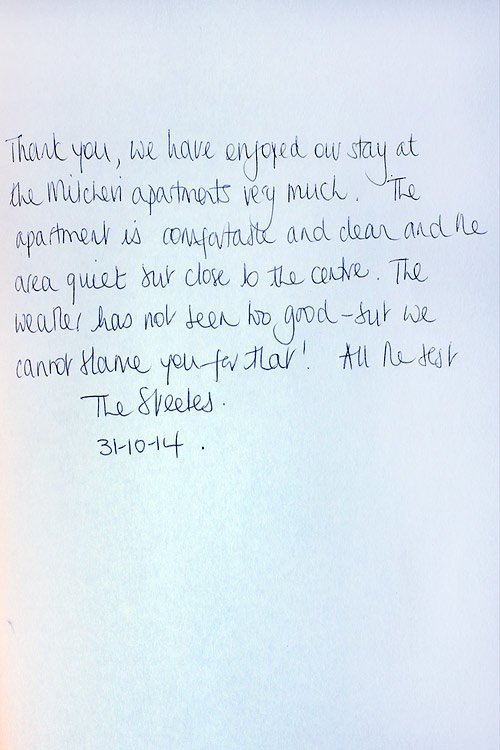 Thank you, we have enjoyed our stay at
the apartments very much. The
apartment is comfortable and clean and the
area quiet but close to the centre. The
weather has not been too good - but we
cannot blame you for that! All the best
The
31-10-14.